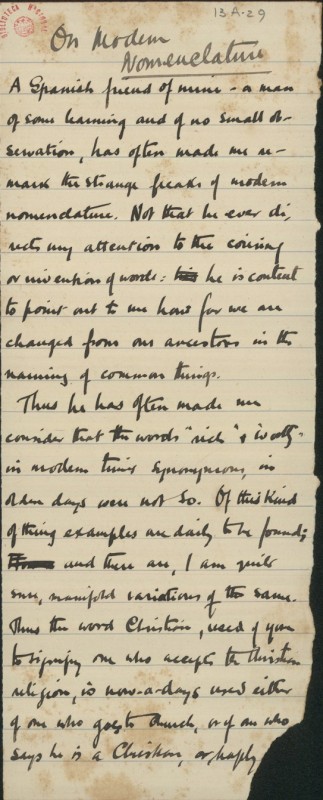 13-A-29
On Modern
Nomenclature
A Spanish friend of mine - a man
of some learning and of no small ob-
servation, has often made me re-
mark the strange freaks of modern
nomenclature. Not that he ever di,
rects my attention to the coining
or invention of words: he is content
to point out to me how far we are
changed from our ancestors in the
naming of common things.
Thus he has often made me
consider that the words "rich" & worthy-
in modern times synonymous, in
olden days were not so. Of this kind
of thing examples are daily to be found;
and there are, I am quite
sure, manifold variations of the same.
Thus the word Christian, used of yore
to signify one who accepts the Christian
religion, is now-a-days used either
of one who goes to Church, or of one who
says he is a Christian, or, haply